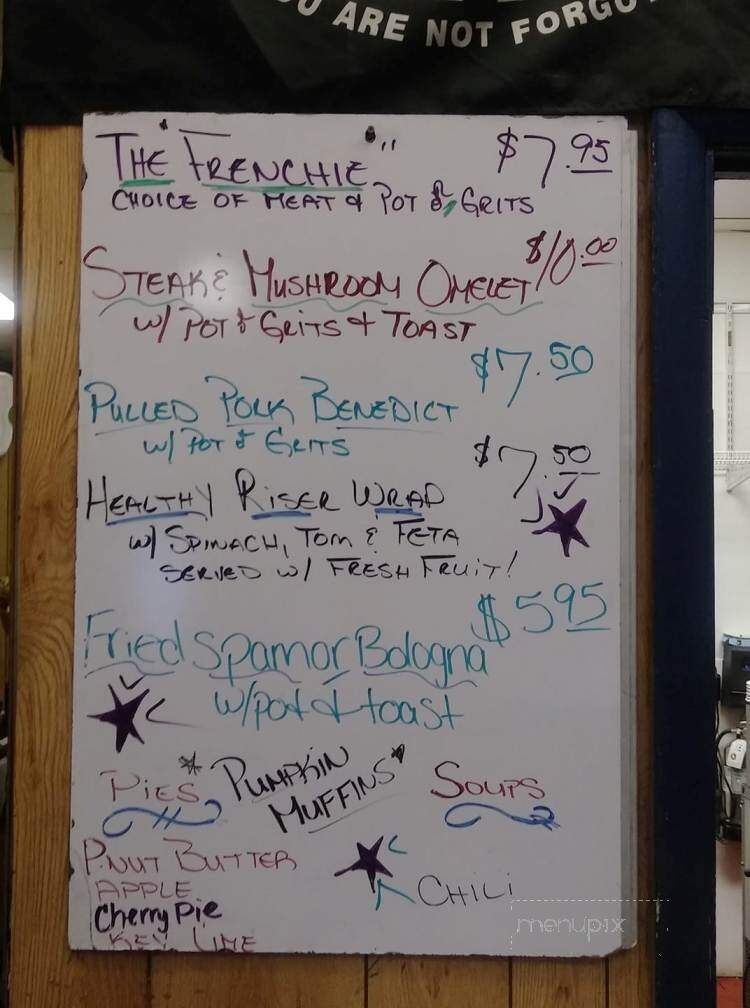 OU ARE NOT FORGO
THE "FRENCHIE" $7.95
CHOICE OF MEAT & POT or GRITS
STEAK & MUSHROOM OMELET $10.00
w/ POT or GRITS & TOAST
$7.50
PULLED PORK BENEDICT
w/ POT or GRITS
$7.50
HEALTHY RISER WRAP
w/ SPINACH, TOM & FETA
SERVED w/ FRESH FRUIT!
$5.95
Fried Spam or Bologna
w/pot & toast
PIES * PUMPKIN MUFFINS * SOUPS
P.NUT BUTTER
APPLE
CHILI
Cherry Pie
KEY LIME
menupix